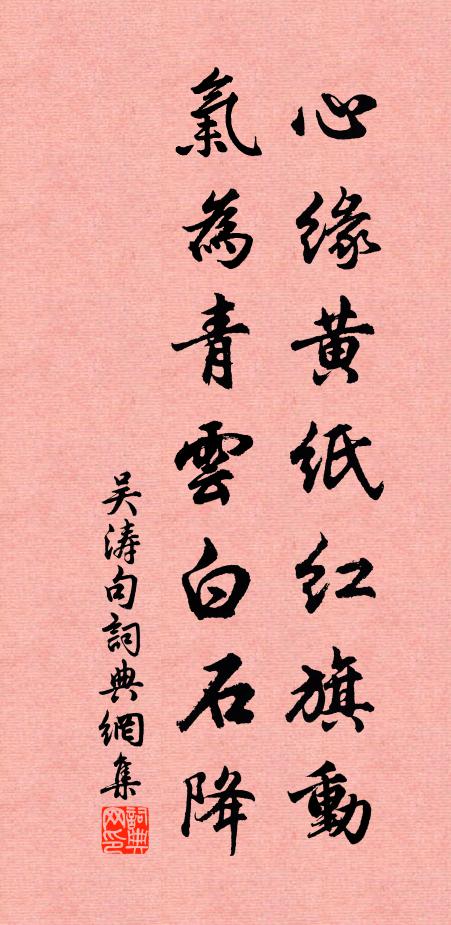 心緣黃紙紅旗動
氣為青雲白石降
吴涛句詞典網集
詞典网印